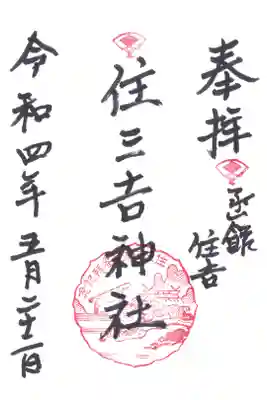 奉拝
函館
住吉
住三吉神社
令和四年 五月二十二日